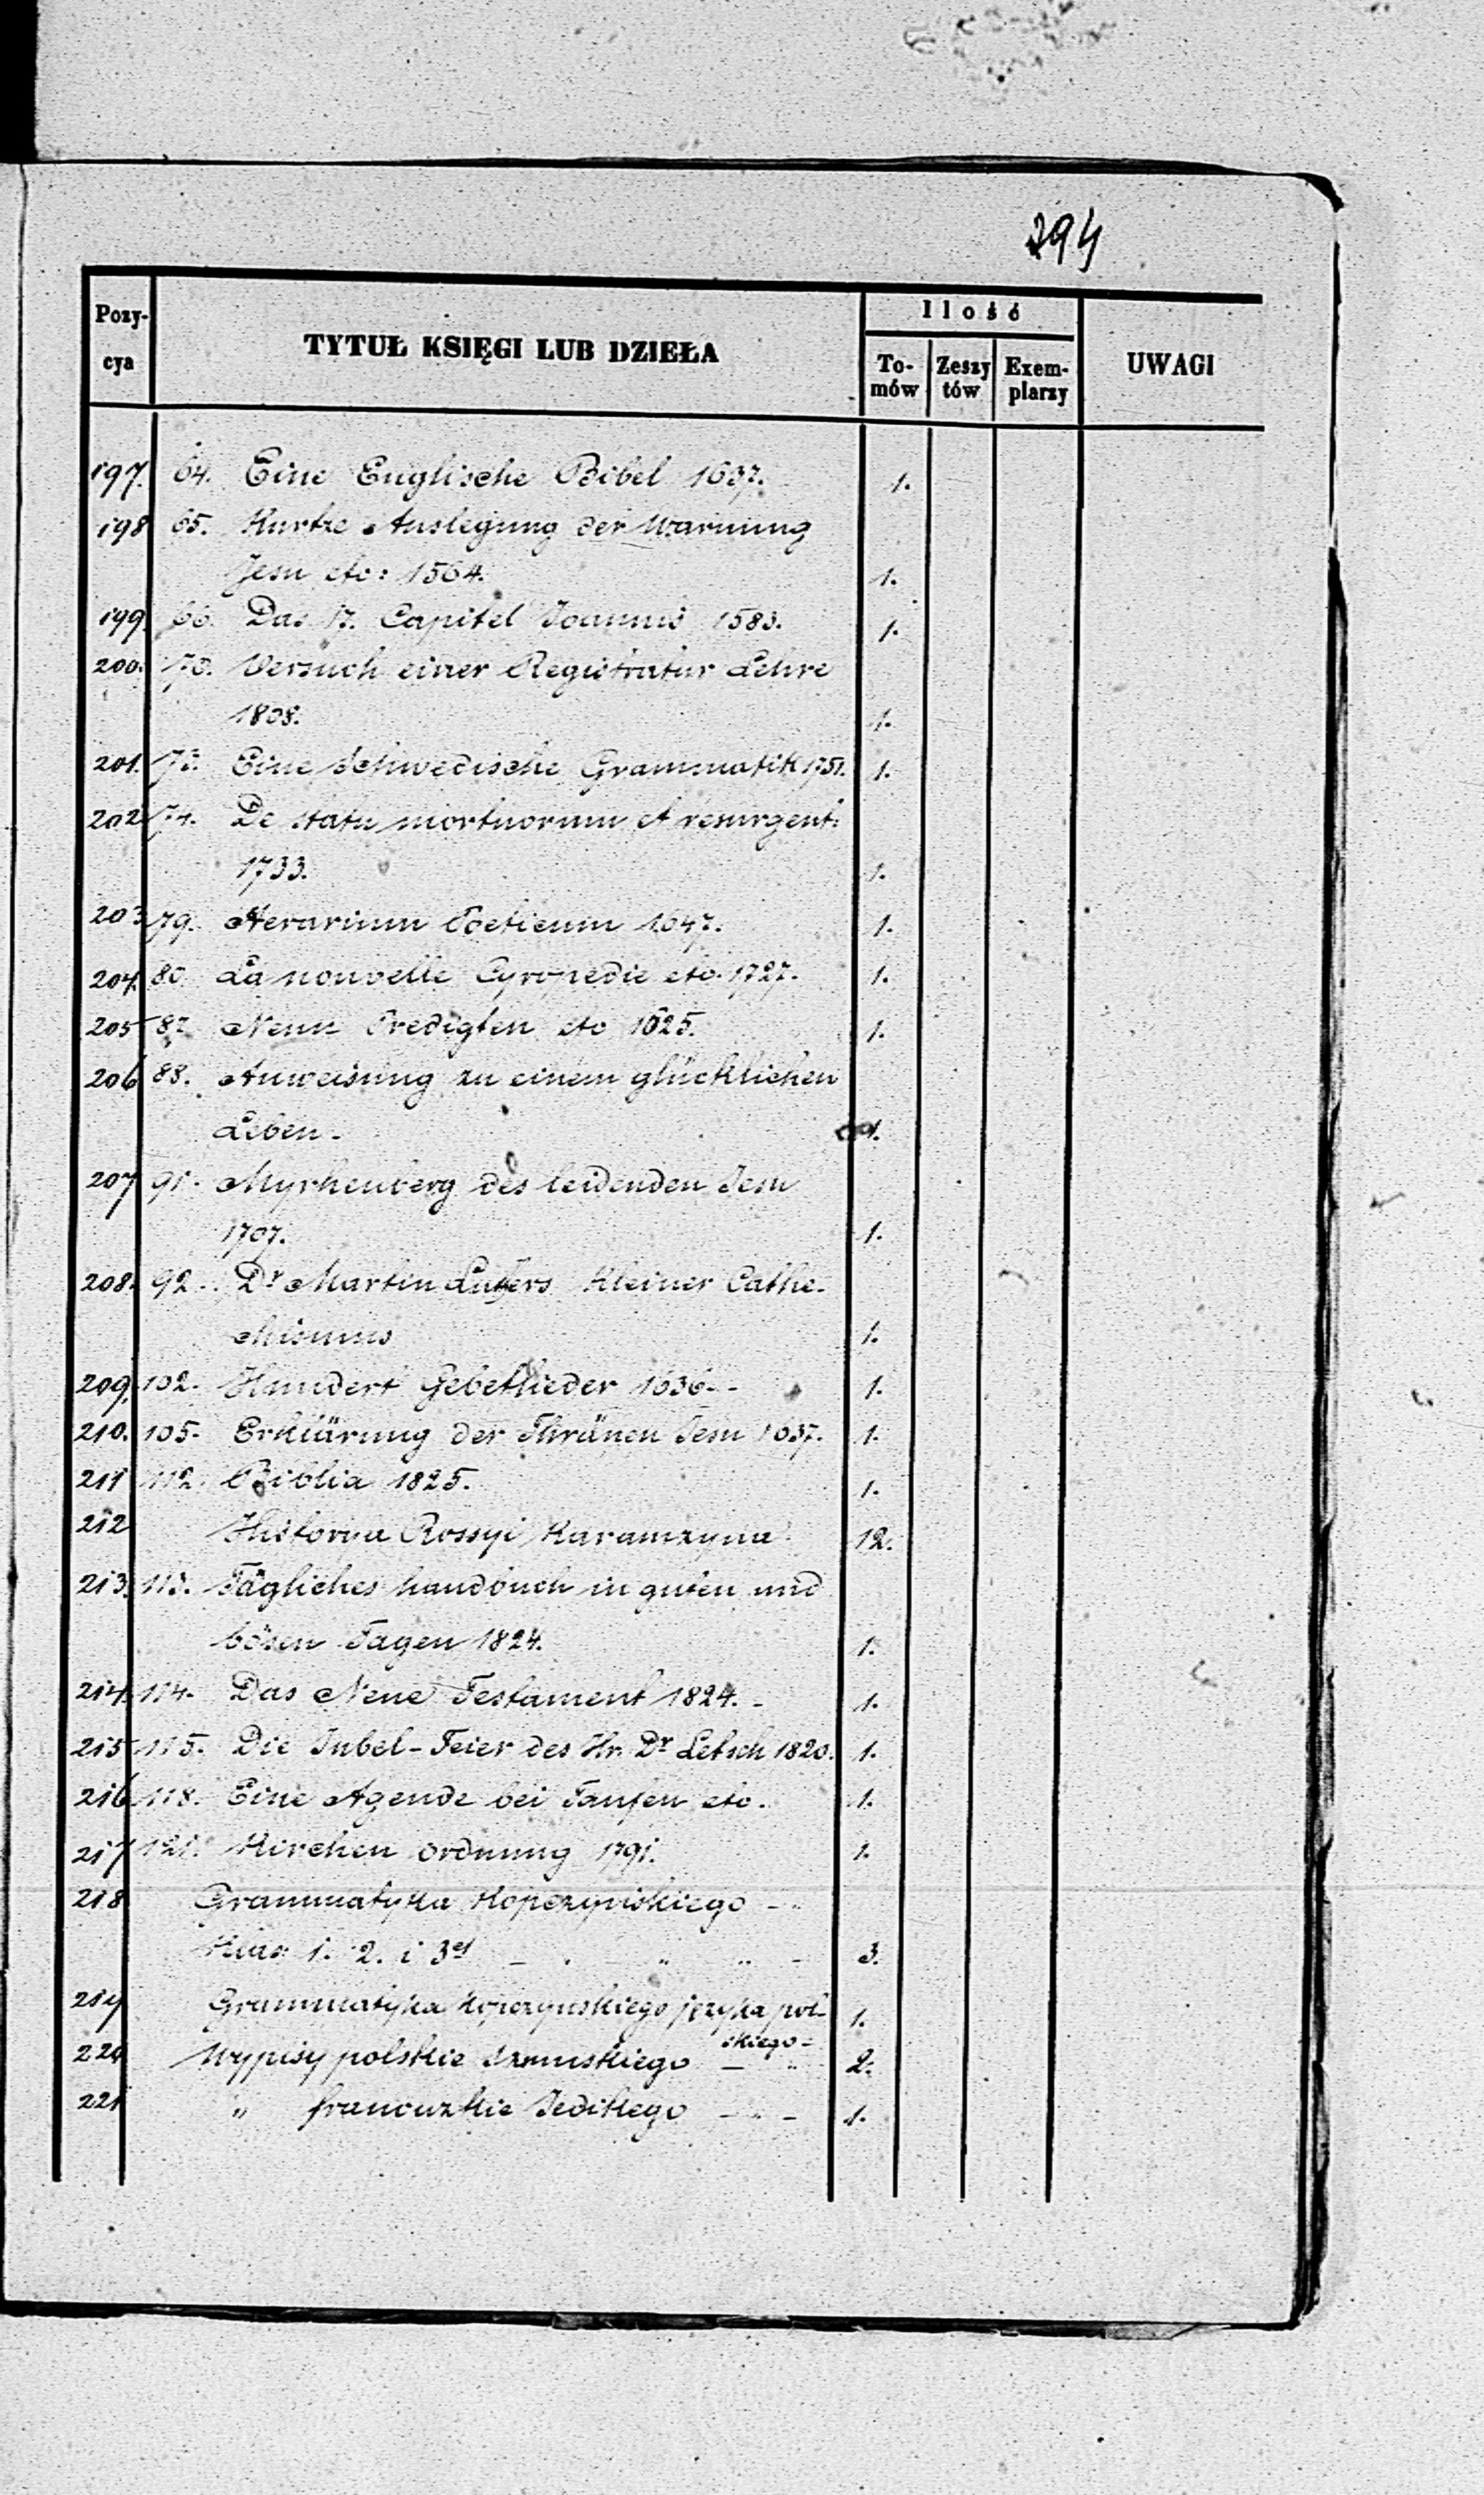 294
Pozy-
cya
TYTUŁ KSIĘGI LUB DZIEŁA
Ilość
To-
mów
Zeszy
tów
Exem-
plarzy
UWAGI
197. 64. Eine Englische Bibel 1637. 1.
198 65. Kurtze Auslegung der Warnung
Jesu etc: 1564. 1.
199. 66. Das 17. Capitel Joannis 1583. 1.
200. 70. Versuch einer Registratur Lehre
1808. 1.
201. 73. Eine Schwedische Grammatik 1751. 1.
202 74. De statu mortuorum et resurgent:
1733. 1.
203 79. Aerarium Poeticum 1647. 1.
204. 80. La nouvelle Cyropedie etc. 1727. 1.
205 87. Neun Predigten etc 1625. 1.
206 88. Anweisung zu einem glücklichen
Leben. 1.
207 91. Myrhenberg des leidenden Jesu
1707. 1.
208. 92. Dr Martin Luthers Kleiner Cathe-
chismus 1.
209. 102. Hundert Gebetlieder 1636. - 1.
210. 105. Erklärung der Thränen Jesu 1637. 1.
211 112. Biblia 1825. 1.
212 Historya Rossyi Karamzyna 12.
213. 113. Tägliches handbuch in guten und
bösen Tagen 1824. 1.
214. 114. Das Neue Testament 1824. - 1.
215 115. Die Jubel-Feier des Hr. Dr Letsch 1820. 1.
216 118. Eine Agende bei Taufen etc. 1.
217 121. Kirchen ordnung 1791. 1.
218 Grammatyka Kopczyńskiego - "
Klas: 1. 2. i 3ej - " " - 3.
219 Grammatyka Kopczynskiego języka pol-
skiego - 1.
220 Wypisy polskie - " 2.
221 " francuzkie - " - 1.